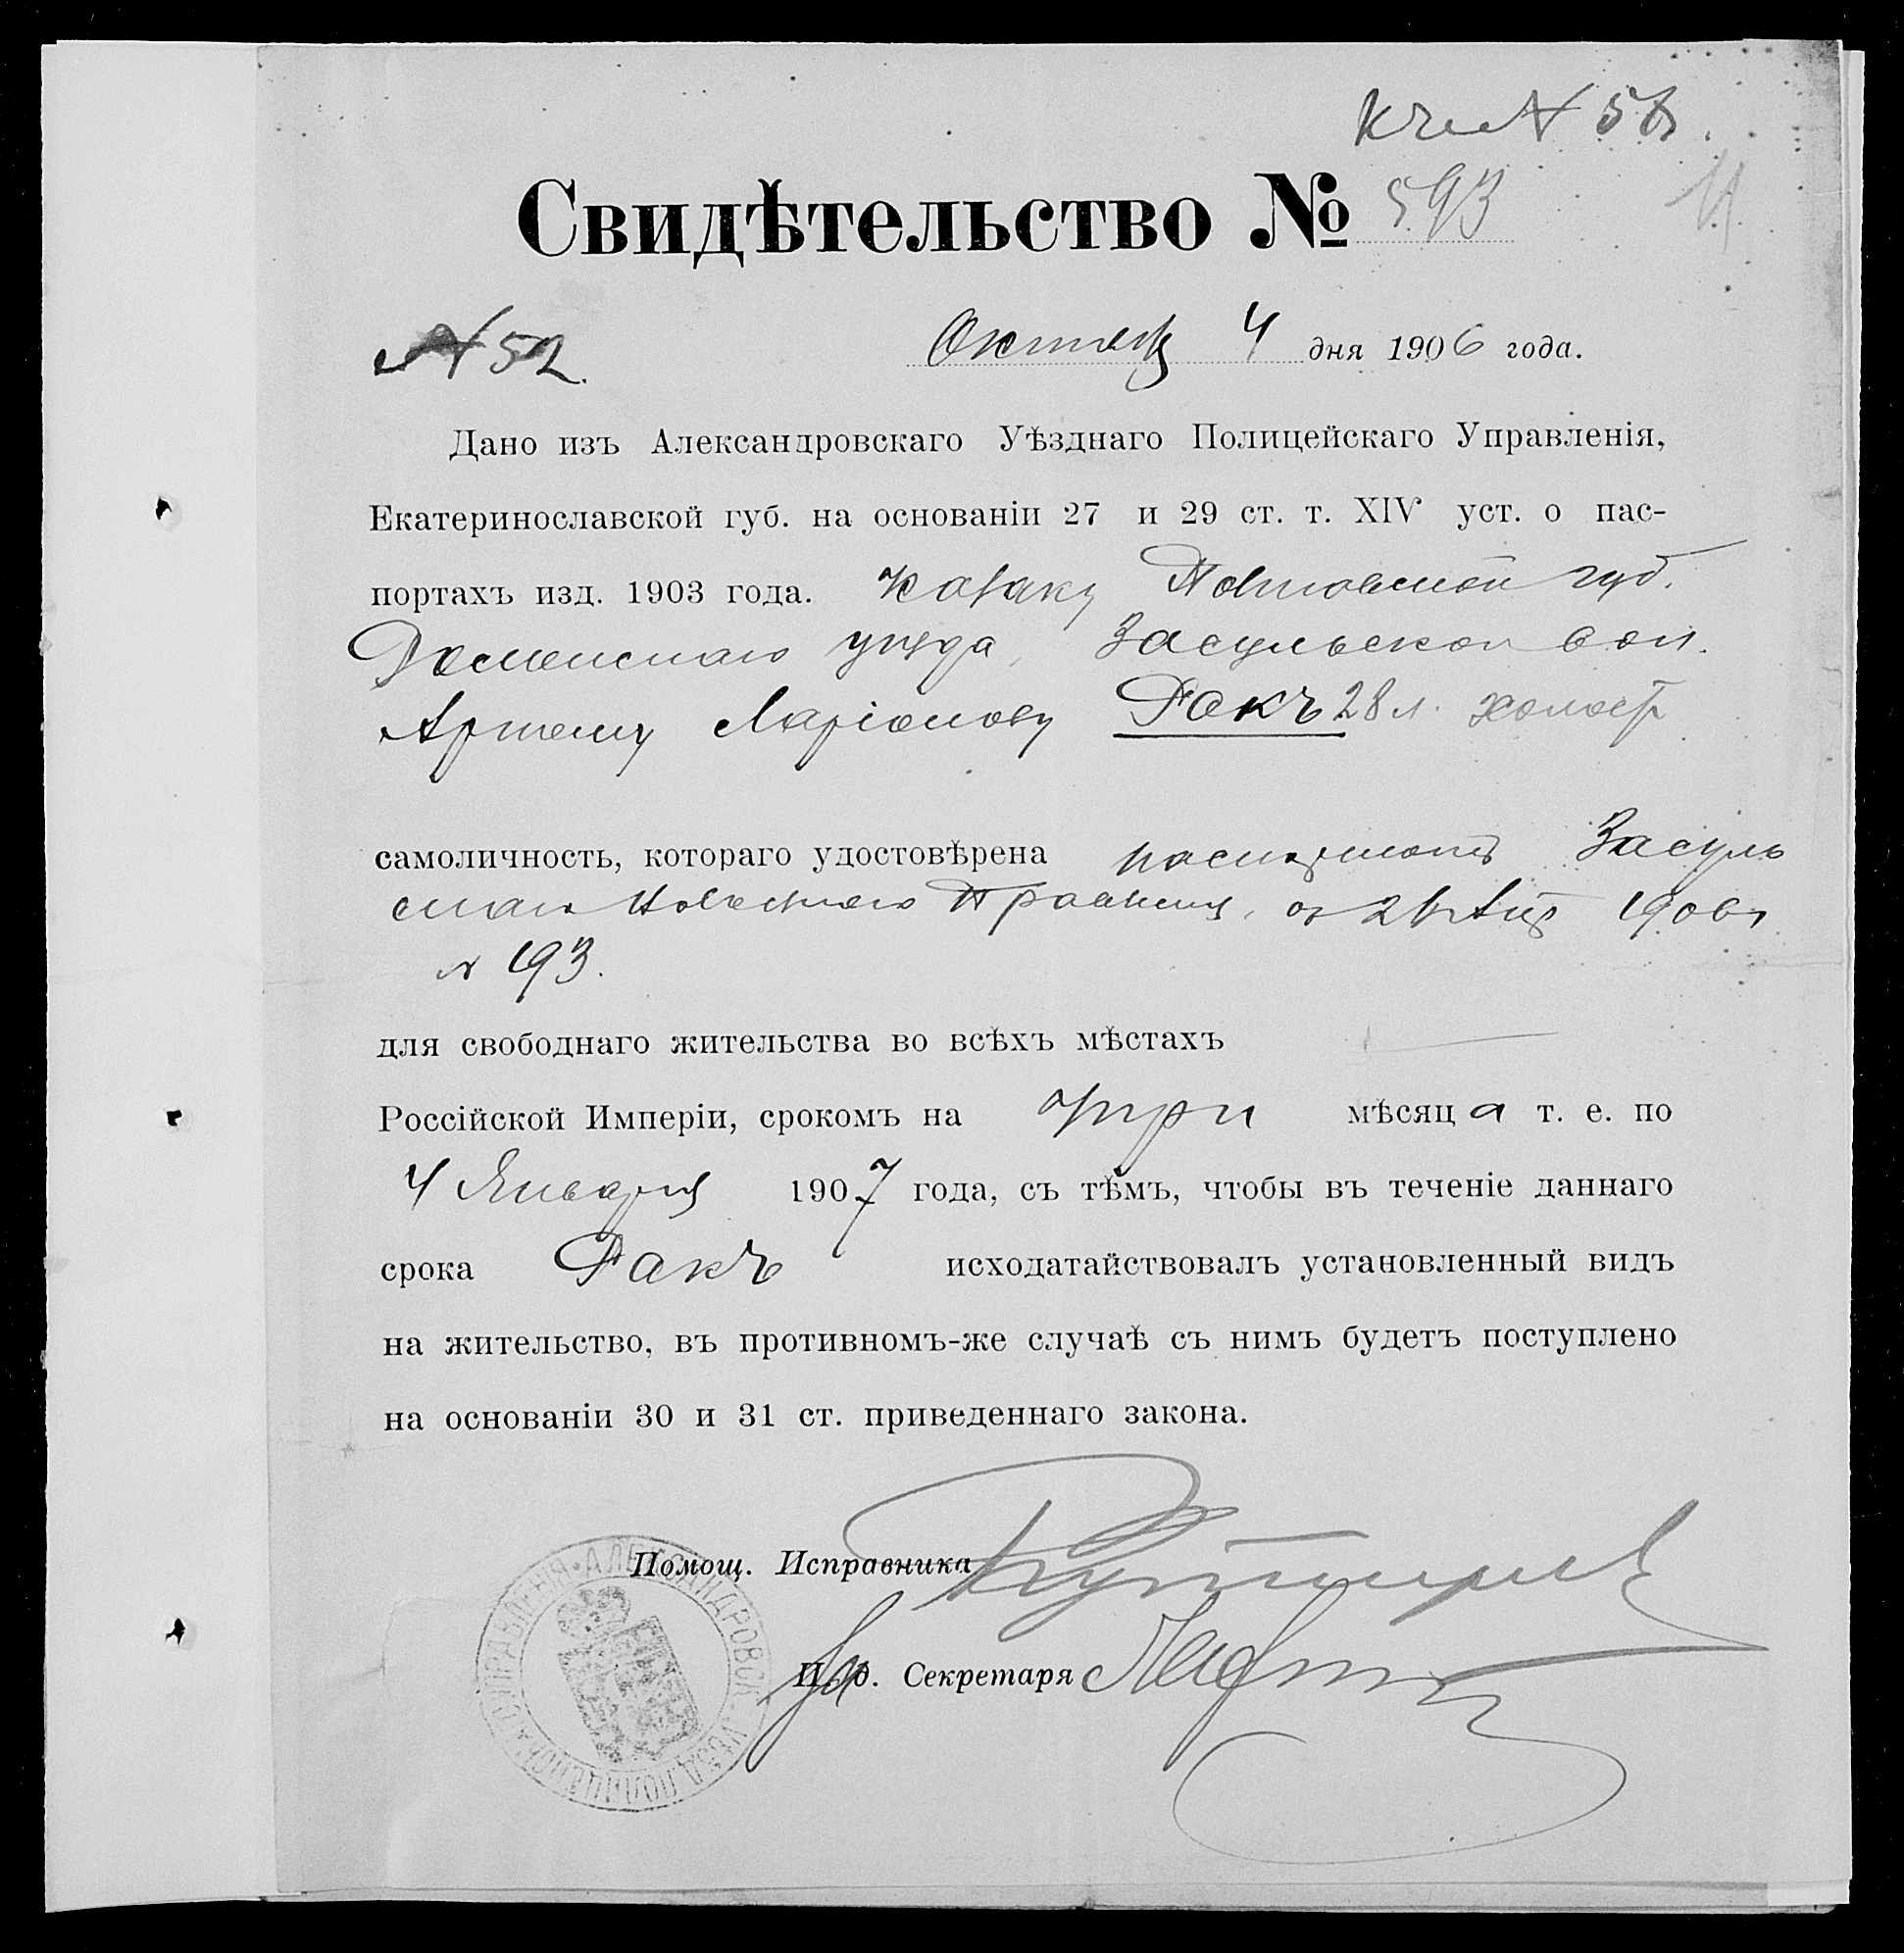 къ № 56.
Свидѣтельство № 593
№ 52.
Октяб 4 дня 1906 года.
Дано изъ Александровскаго Уѣзднаго Полицейскаго Управленія,
Екатеринославской губ. на основаніи 27 и 29 ст. т. XIV уст. о пас-
портахъ изд. 1903 года. Казаку Полтавской губ.
Роменскаго уѣзда, Засульской вол.
Артему Ларіонову Ракъ 28 л. холост
самоличность, котораго удостовѣрена паспортомъ Засуль
скаго Волостного Правленія, от Авг 1906 г
№ 193.
для свободнаго жительства во всѣхъ мѣстахъ
Россійской Имперіи, срокомъ на три мѣсяца т. е. по
4 Января 1907 года, съ тѣмъ, чтобы въ теченіе даннаго
срока Ракъ исходатайствовалъ установленный видъ
на жительство, въ противномъ-же случаѣ съ нимъ будетъ поступлено
на основаніи 30 и 31 ст. приведеннаго закона.
Помощ. Исправника
И. д. Секретаря
АЛЕКСАНДРОВСК. УѢЗД. ПОЛИЦЕЙСКОГО УПРАВЛЕНІЯ